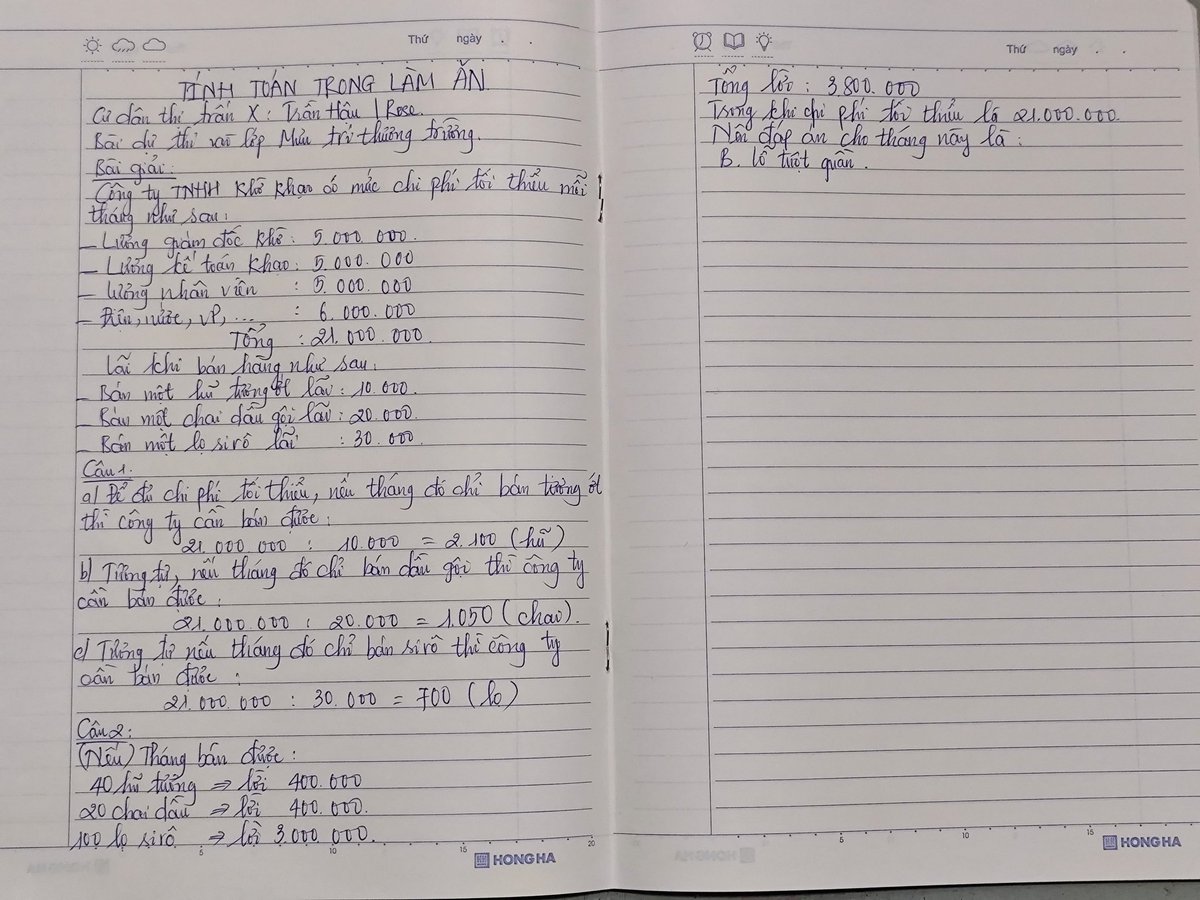 Thứ ngày . .
TÍNH TOÁN TRONG LÀM ĂN.
Cư dân thị trấn X: Trần Hậu | Rose.
Bài dự thi vào lớp Mưu trí thương trường.
Bài giải:
Công ty TNHH Khờ Khạo có mức chi phí tối thiểu mỗi
tháng như sau:
- Lương giám đốc Khờ: 5.000.000.
- Lương kế toán Khạo: 5.000.000
- Lương nhân viên : 5.000.000
- Điện, nước, VP, ... : 6.000.000
Tổng : 21.000.000.
Lãi khi bán hàng như sau:
- Bán một hũ tương ớt lãi: 10.000.
- Bán một chai dầu gội lãi: 20.000.
- Bán một lọ sirô lãi : 30.000.
Câu 1.
a) Để đủ chi phí tối thiểu, nếu tháng đó chỉ bán tương ớt
thì công ty cần bán được:
21.000.000 : 10.000 = 2.100 (hũ)
b) Tương tự, nếu tháng đó chỉ bán dầu gội thì công ty
cần bán được:
21.000.000 : 20.000 = 1.050 (chai).
c) Tương tự nếu tháng đó chỉ bán sirô thì công ty
cần bán được:
21.000.000 : 30.000 = 700 (lọ)
Câu 2:
(Nếu) Tháng bán được:
40 hũ tương ⇒ lời 400.000
20 chai dầu ⇒ lời 400.000.
100 lọ sirô ⇒ lời 3.000.000.
5 10 15 20
HONG HA
Thứ ngày . .
Tổng lời: 3.800.000
Trong khi chi phí tối thiểu là 21.000.000.
Nên đáp án cho tháng này là:
B. lỗ tuột quần.
5 10 15
HONG HA